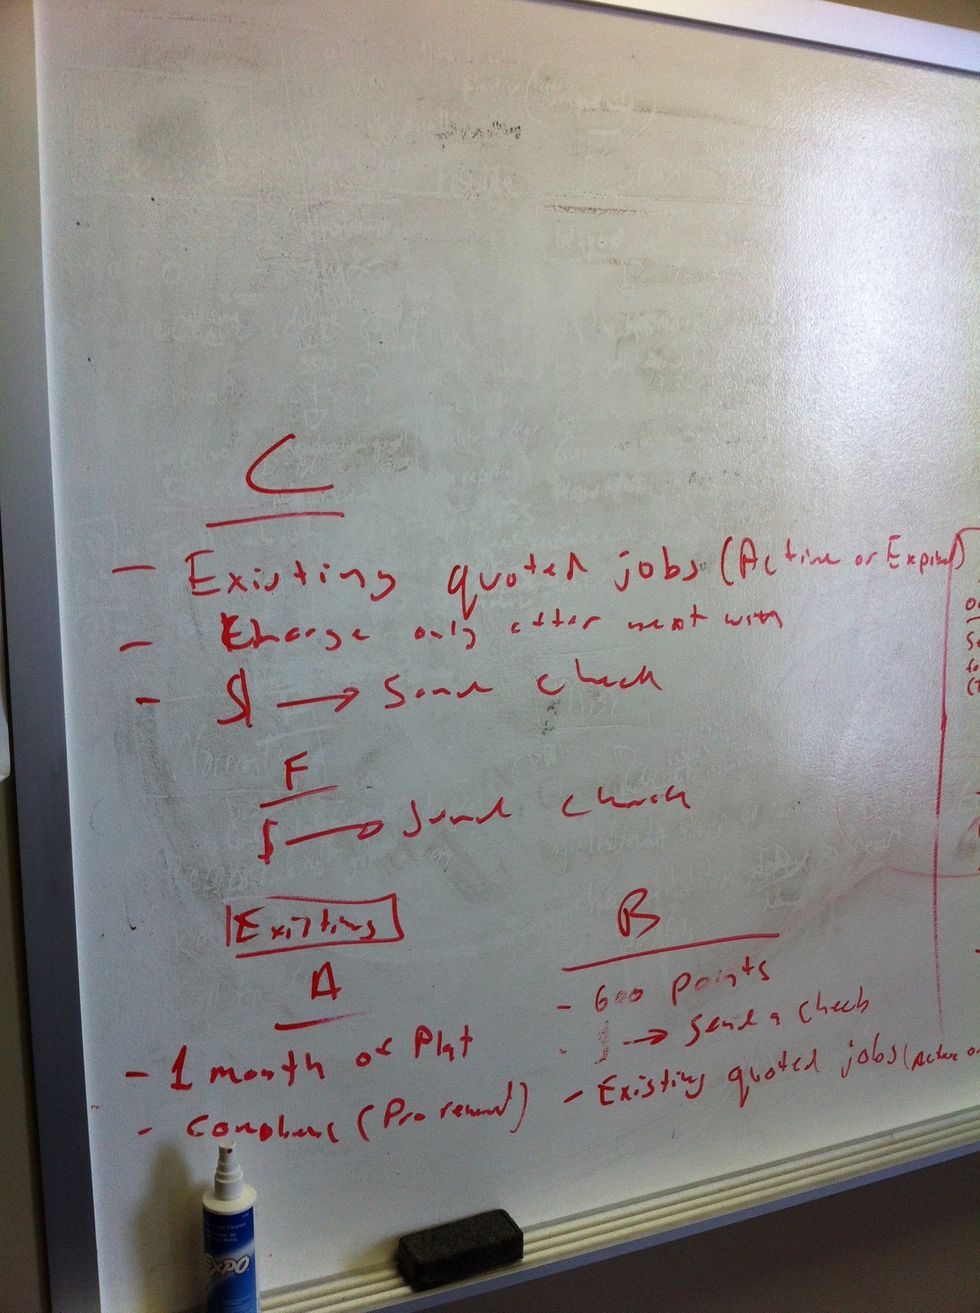 C
- Existing quoted jobs (Active or Expired)
- Charge only after meet with
- $ → Send check
F
$ → Send check
Existing
A
- 1 month of Plat
- (Pro remund)
B
- 600 points
- $ → Send a check
- Existing quoted jobs (Active or
EXPO